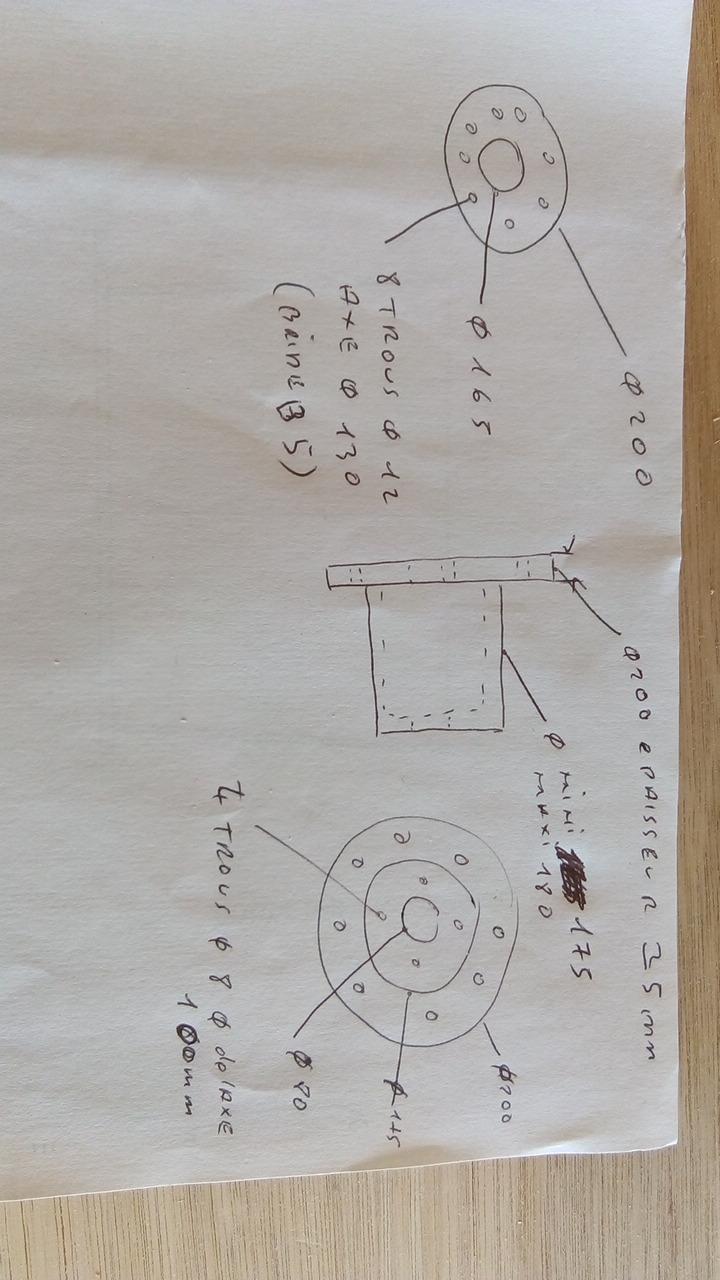 φ 200
φ 165
8 TROUS φ 12
AXE φ 130
(BRIDE B5)
φ 200 EPAISSEUR ≥ 5 mm
φ mini 175
maxi 180
φ 200
φ 175
φ 80
4 TROUS φ 8 φ de l'AXE
100 mm